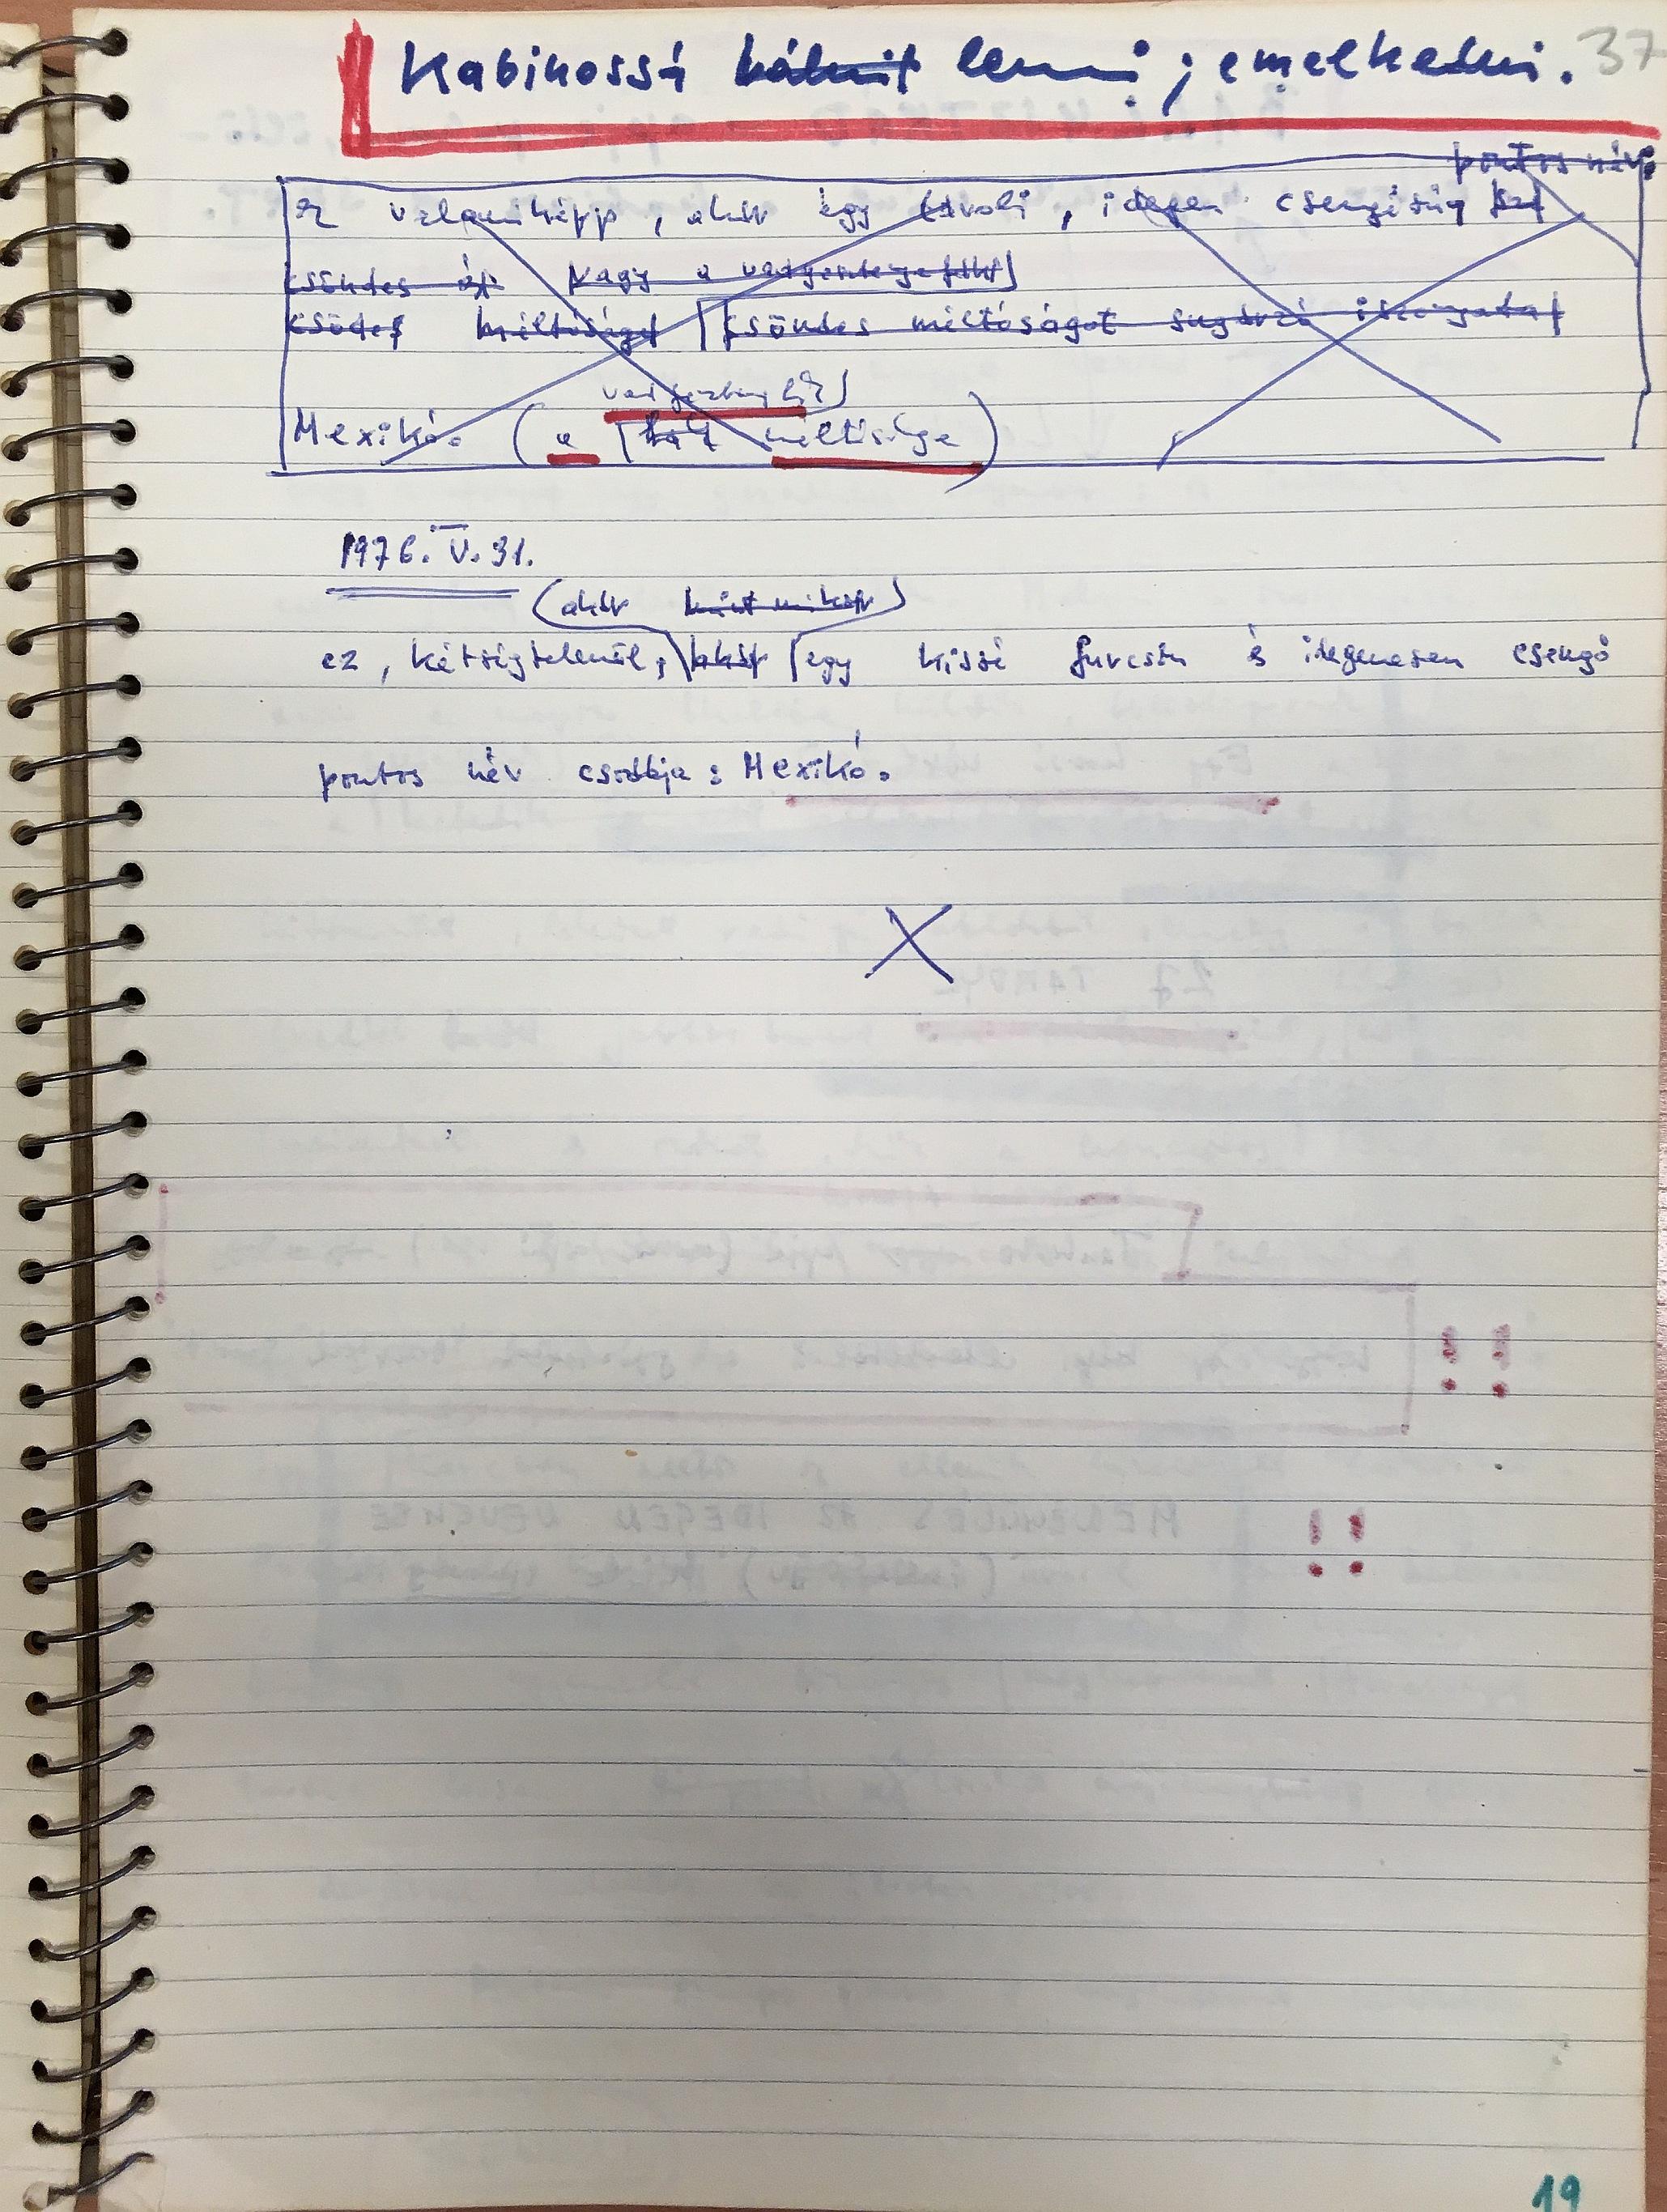 Kabinossá válnit lenni; emelkedni. 37
pontos név:
Ez valamiképp, akár egy távoli, idegen csengésű
csöndes éji vagy a vadgesztenyefák
csöndes méltóság csöndes méltóságot sugárzó
vadgesztenyefa
Mexikó. (a fák méltósága)
1976. V. 31.
(akár mint mikor)
ez, kétségtelenül, akár egy kissé furcsán és idegenesen csengő
pontos név csodája: Mexikó.
19